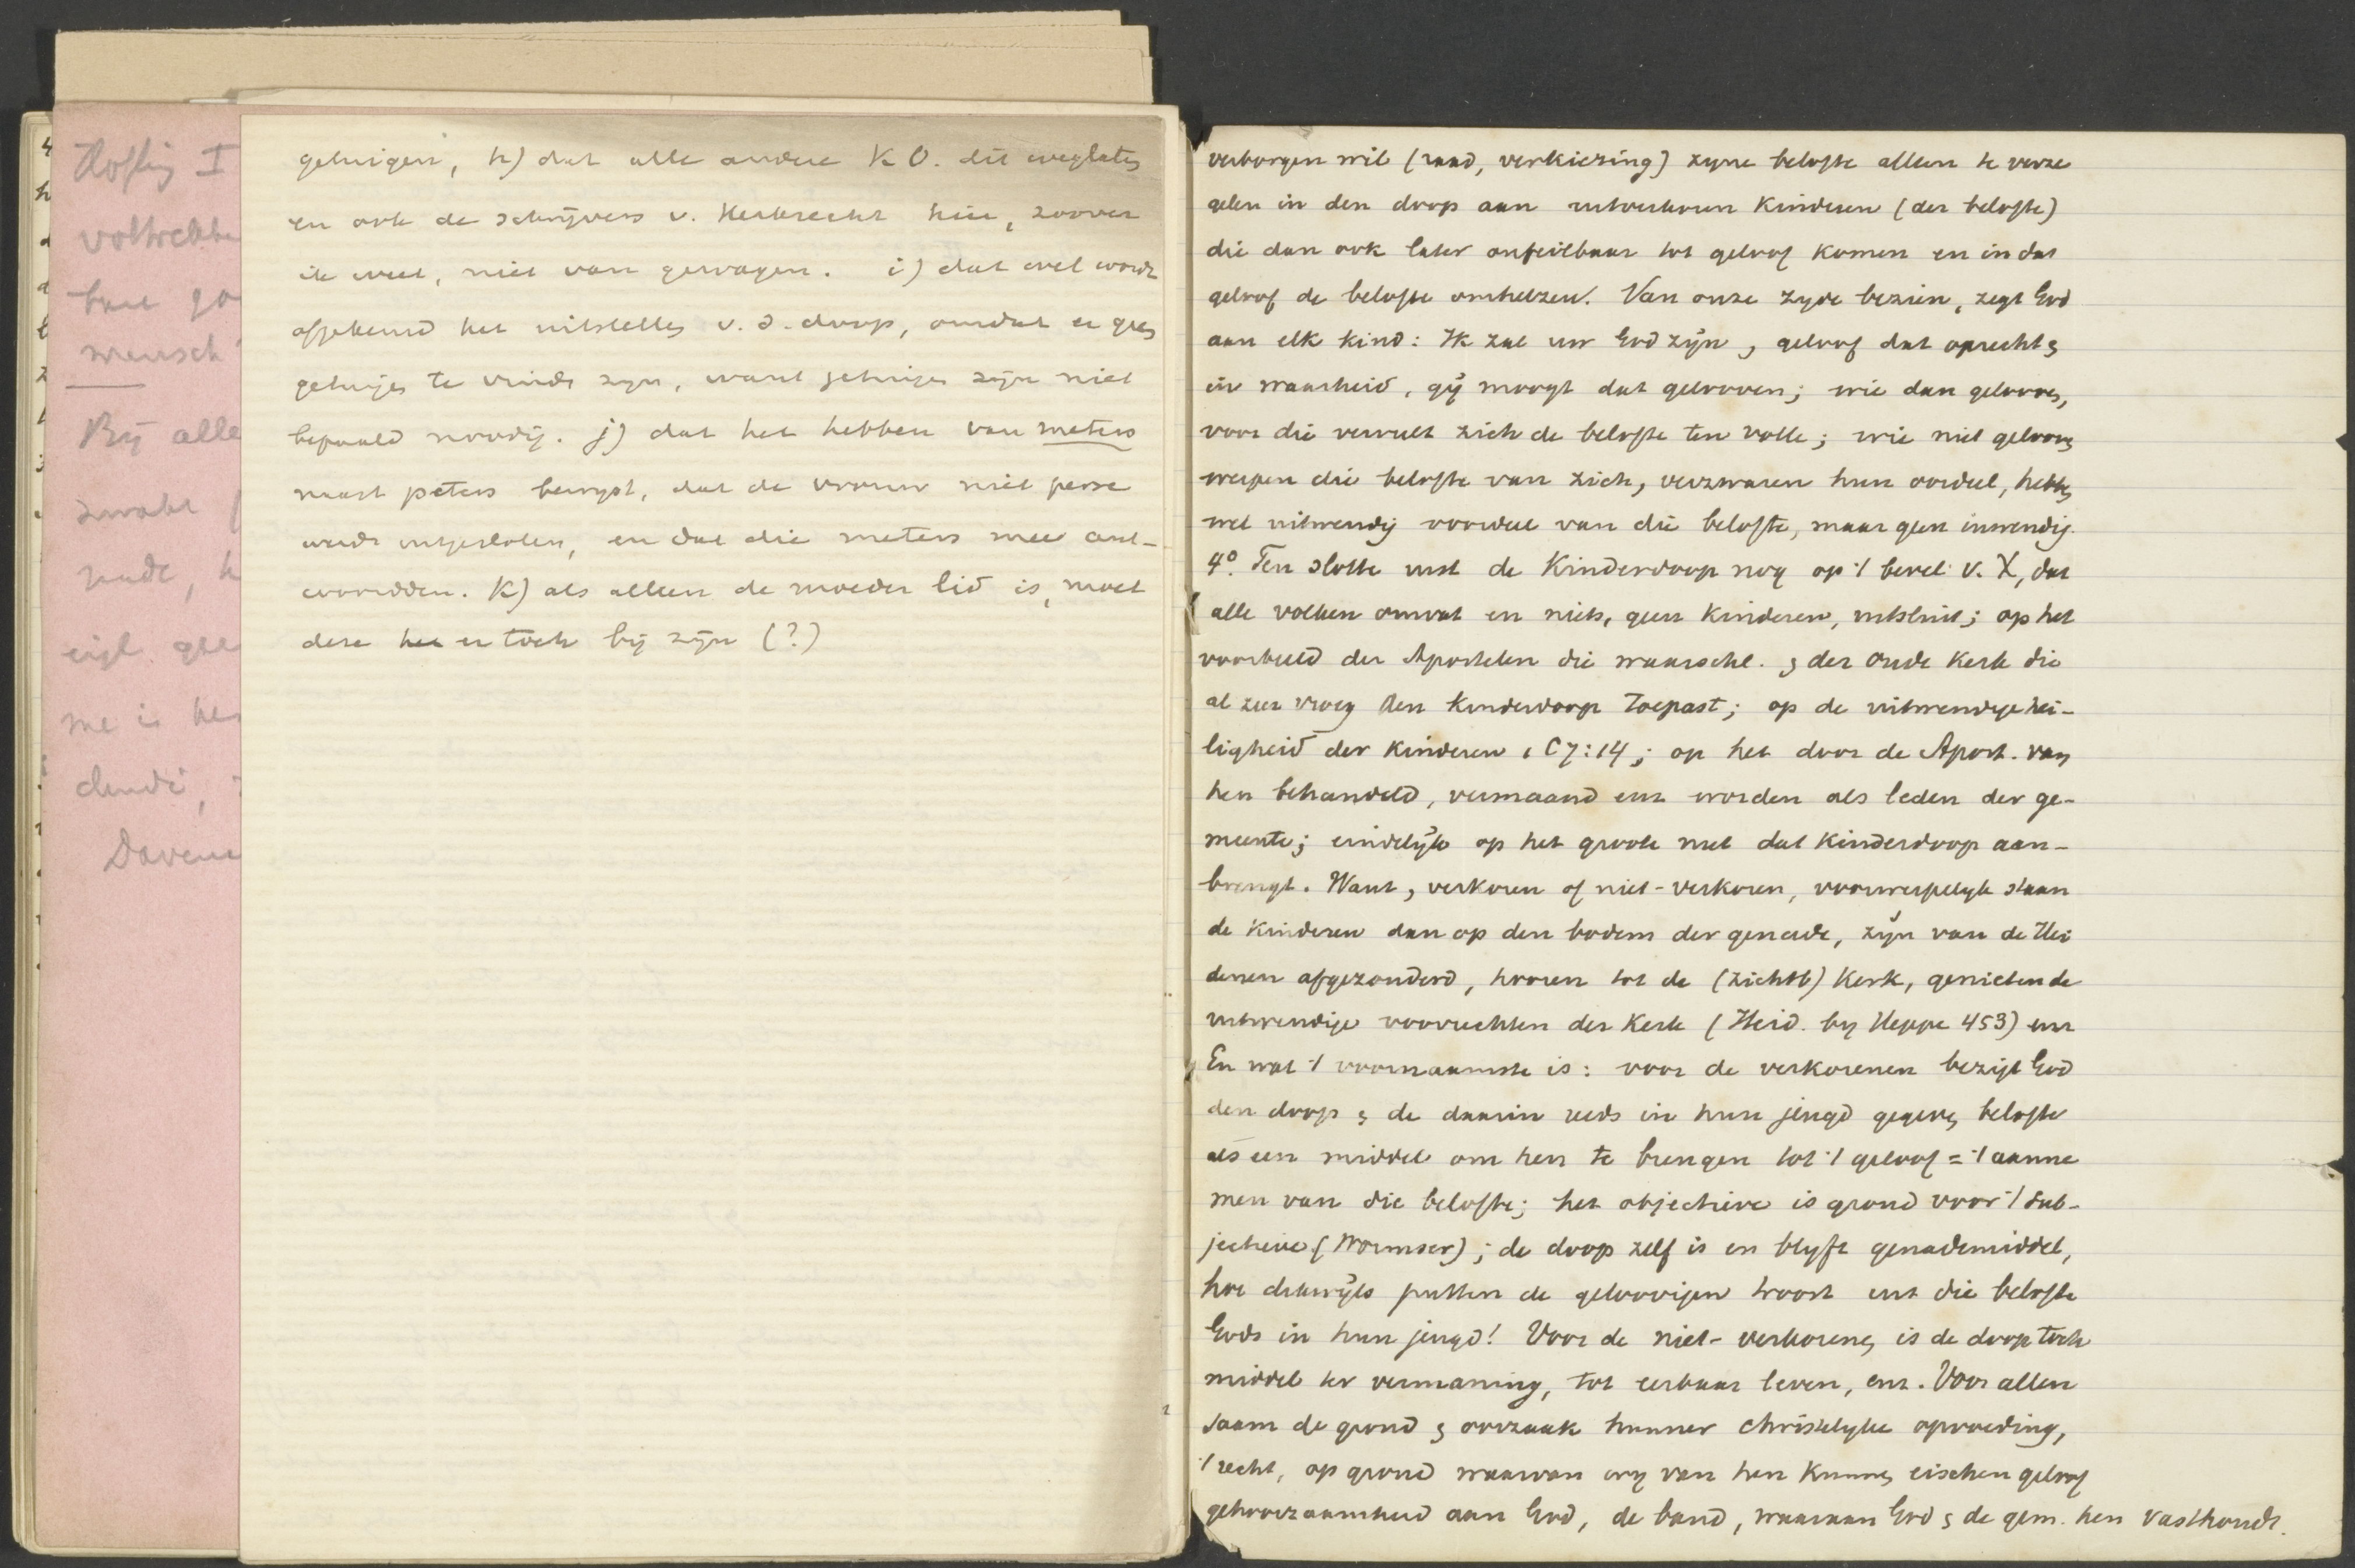 Hoffig I
voltrekke
kan go
mensch
Bij alle
zwakt
rade, h
eigl. gee
me is he
dende,
Davena
getuigen, h) dat alle andere KO. dit weglaten
en ook de schrijvers v. Kerkrecht hier, zoover
ik weet, niet van gewagen. i) dat wel wordt
afgekeurd het uitstellen v. d. doop, omdat er geen
getuigen te vinden zijn, want getuigen zijn niet
bepaald noodig. j) dat het hebben van meters
naast peters bewijst, dat de vrouw niet perse
werd uitgesloten, en dat die meters mee ant-
woordden. K) als alleen de moeder lid is, moet
deze er toch bij zijn (?)
verborgen wil (raad, verkiezing) zyne belofte alleen te verze
gelen in den doop aan uitverkoren kinderen (der belofte)
die dan ook later onfeilbaar tot geloof komen en in dat
geloof de belofte omhelzen. Van onze zyde bezien, zegt God
aan elk kind: Ik zal uw God zijn, geloof dat oprecht &
in waarheid, gij moogt dat gelooven; wie dan gelooven,
voor die vervult zich de belofte ten volle; wie niet gelooven
werpen die belofte van zich, verzwaren hun oordeel, hebben
wel uitwendig voordeel van die belofte, maar geen inwendig.
4°. Ten slotte rust de Kinderdoop nog op 't bevel v. X, dat
alle volken omvat en niets, geen kinderen, uitsluit; op het
voorbeeld der Apostelen die waarschl. & der oude kerk die
al zeer vroeg den kinderdoop toepast; op de uitwendige hei-
ligheid der kinderen 1 C 7:14; op het door de Apost. van
hen behandeld, vermaand enz worden als leden der ge-
meente; eindelijk op het groote nut dat kinderdoop aan-
brengt. Want, verkoren of niet-verkoren, voorwerpelyk staan
de kinderen dan op den bodem der genade, zijn van de Hei
denen afgezonderd, hooren tot de (zichtb) Kerk, genieten de
uitwendige voorrechten der Kerk (Heid. by Heppe 453) enz
En wat 't voornaamste is: voor de verkorenen bezigt God
den doop & de daarin reeds in hun jeugd gegeven belofte
als een middel om hen te brengen tot 't geloof = 't aanne
men van die belofte; het objectieve is grond voor 't sub-
jectieve (Wormser); de doop zelf is en blyft genademiddel,
hoe dikwijls putten de geloovigen troost uit die belofte
Gods in hun jeugd! Voor de niet-verkorenen is de doop toch
middel ter vermaning, tot eerbaar leven, enz. Voor allen
saam de grond & oorzaak hunner christelyke opvoeding,
't recht, op grond waarvan wy van hen kunnen eischen geloof
gehoorzaamheid aan God, de band, waaraan God & de gem. hen vasthoudt.